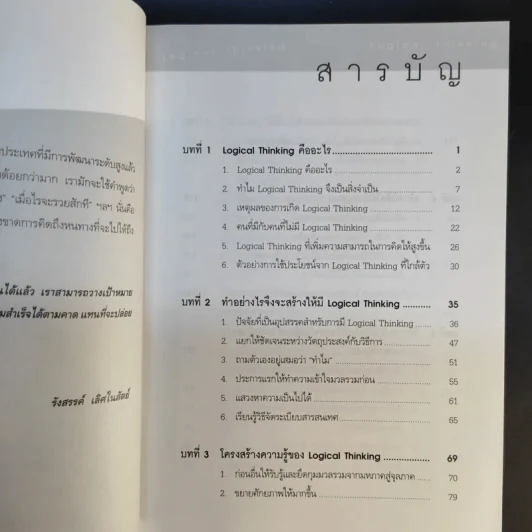 ประเทศที่มีการพัฒนาระดับสูงแล้ว
ด้อยกว่ามาก เรามักจะใช้คำพูดว่า
"เมื่อไรจะรวยสักที" ฯลฯ นั่นคือ
ขาดการคิดถึงหนทางที่จะไปให้ถึง
ได้แล้ว เราสามารถวางเป้าหมาย
สำเร็จได้ตามคาด แทนที่จะปล่อย
รังสรรค์ เลิศในสัตย์
สารบัญ
บทที่ 1 Logical Thinking คืออะไร 1
1. Logical Thinking คืออะไร 2
2. ทำไม Logical Thinking จึงเป็นสิ่งจำเป็น 7
3. เหตุผลของการเกิด Logical Thinking 12
4. คนที่มีกับคนที่ไม่มี Logical Thinking 22
5. Logical Thinking ที่เพิ่มความสามารถในการคิดให้สูงขึ้น 26
6. ตัวอย่างการใช้ประโยชน์จาก Logical Thinking ที่ใกล้ตัว 30
บทที่ 2 ทำอย่างไรจึงจะสร้างให้มี Logical Thinking 35
1. ปัจจัยที่เป็นอุปสรรคสำหรับการมี Logical Thinking 36
2. แยกให้ชัดเจนระหว่างวัตถุประสงค์กับวิธีการ 47
3. ถามตัวเองอยู่เสมอว่า "ทำไม" 51
4. ประการแรกให้ทำความเข้าใจมวลรวมก่อน 55
5. แสวงหาความเป็นไปได้ 61
6. เรียนรู้วิธีจัดระเบียบสารสนเทศ 65
บทที่ 3 โครงสร้างความรู้ของ Logical Thinking 69
1. ก่อนอื่นให้รับรู้และยึดกุมมวลรวมจากมหภาคสู่จุลภาค 70
2. ขยายศักยภาพให้มากขึ้น 79